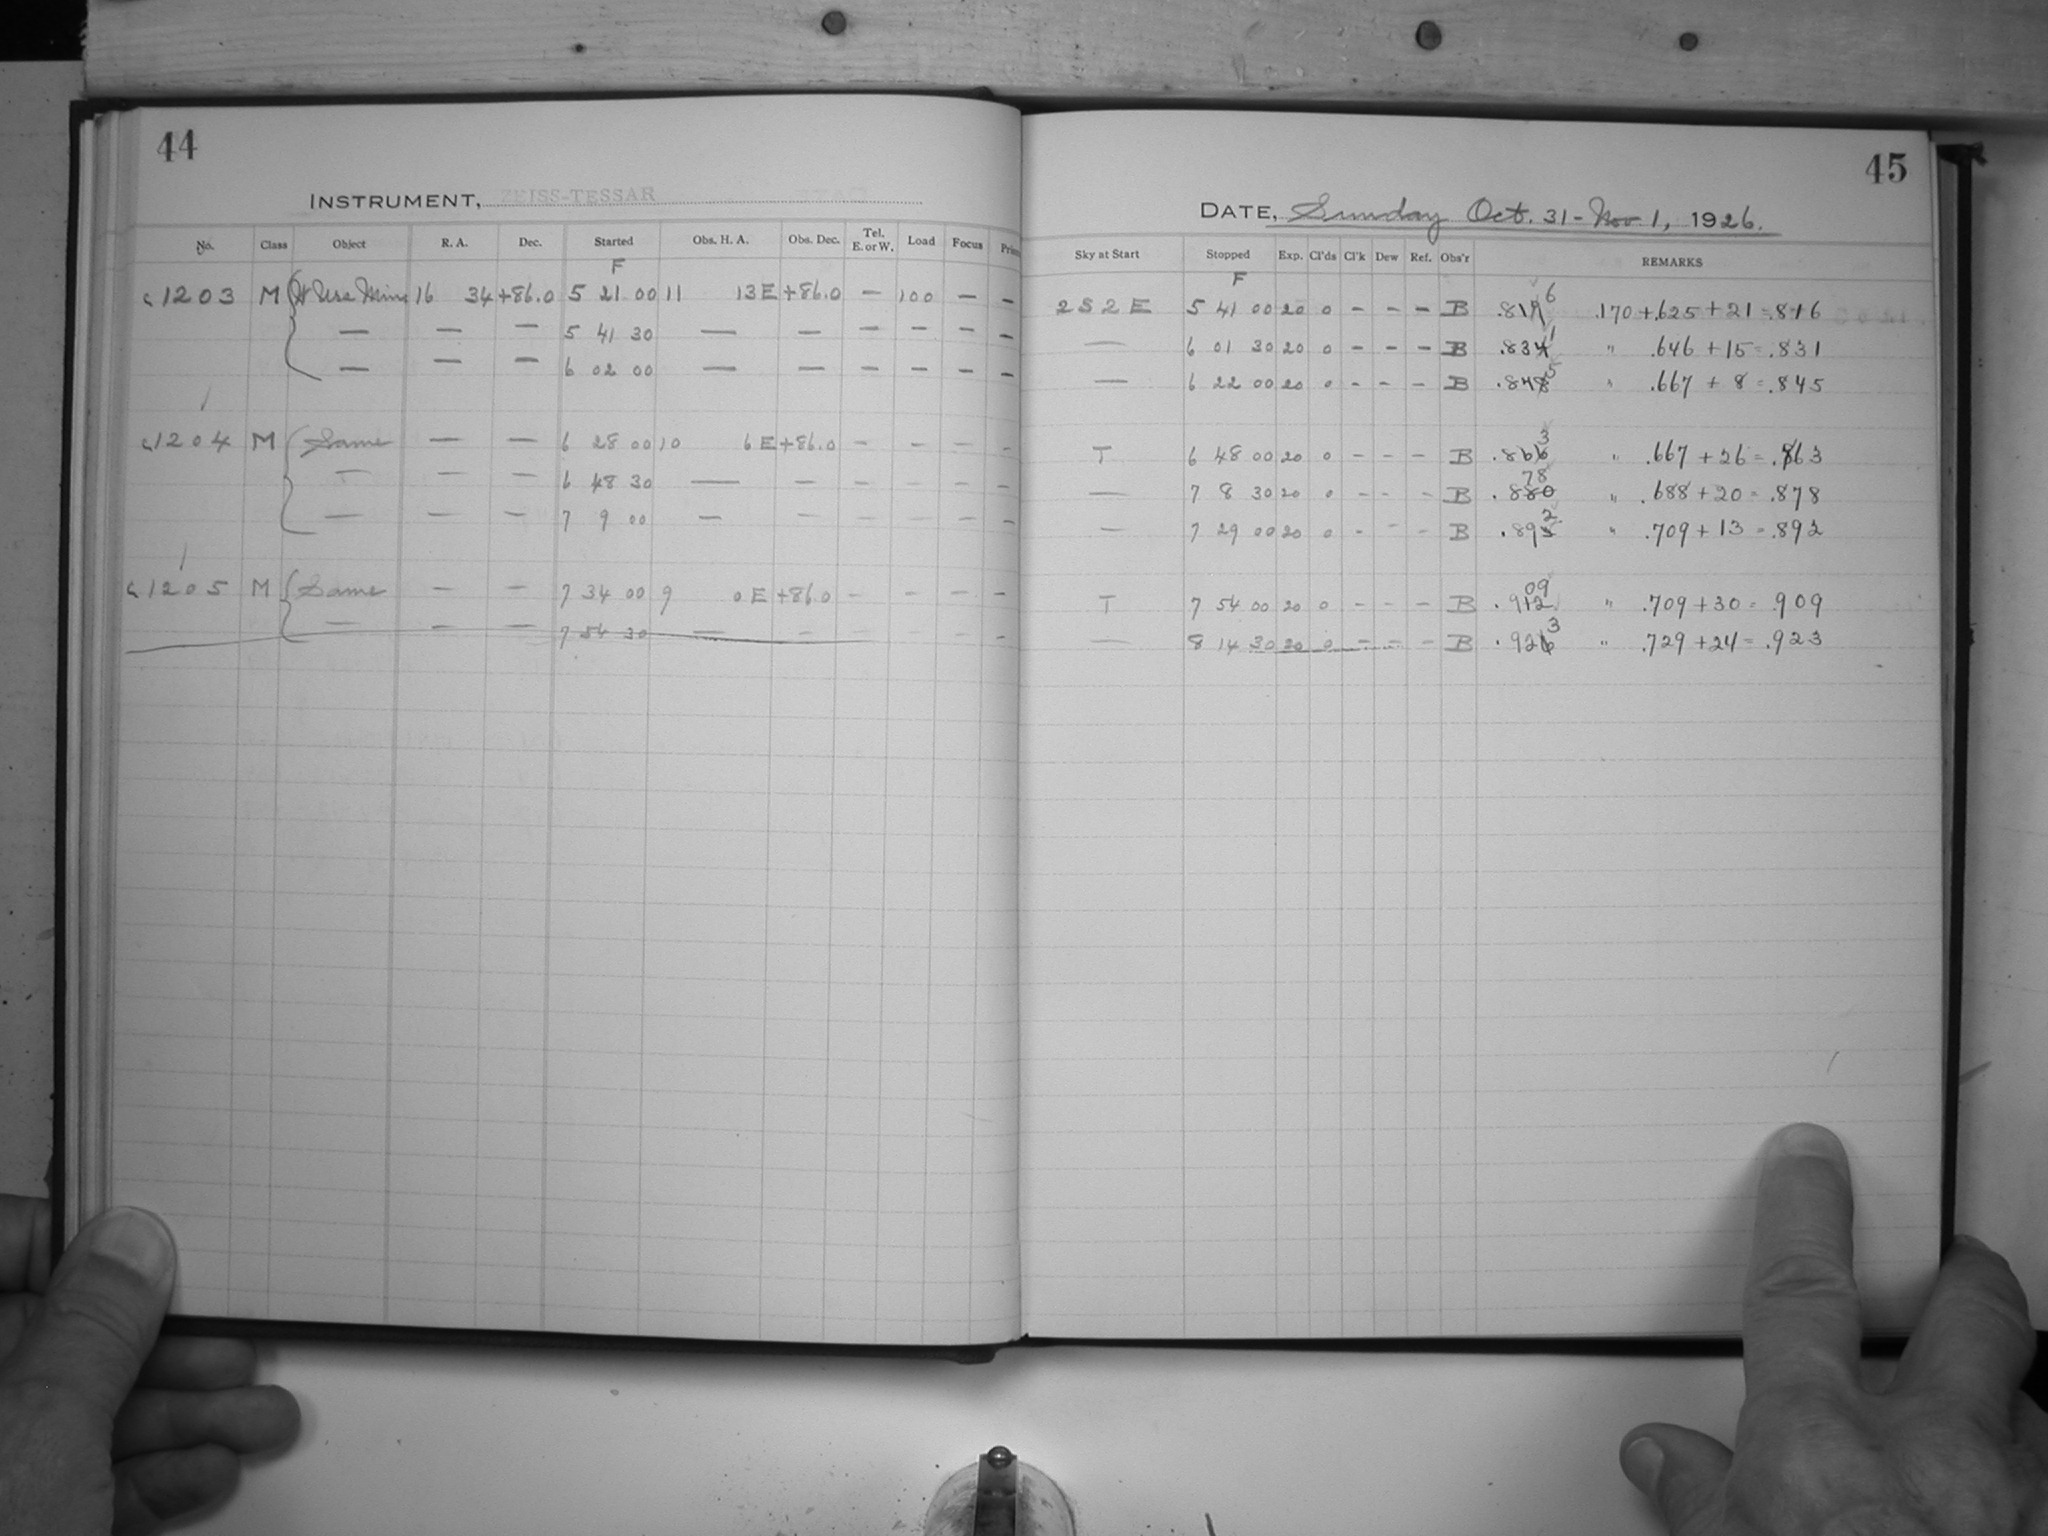 44
INSTRUMENT, ZEISS-TESSAR
No. Class Object R. A. Dec. Started Obs. H. A. Obs. Dec. Tel. E. or W. Load Focus
F
1203 M 16 34 +86.0 5 21 00 11 13 E +86.0 — 100 — —
— — — 5 41 30 — — — — — —
— — — 6 02 00 — — — — — —
1204 M Same — — 6 28 00 10 6 E +86.0 — — — —
— — — 6 48 30 — — — — — —
— — — 7 9 00 — — — — — —
1205 M Same — — 7 34 00 9 0 E +86.0 — — — —
— — — 7 54 30 — — — — — —
45
DATE, Sunday Oct. 31 - Nov 1, 1926.
Sky at Start Stopped Exp. Cl'ds Cl'k Dew Ref. Obs'r REMARKS
F
2 S 2 E 5 41 00 20 0 - - - B .81 6 .170 + .625 + 21 = .816
— 6 01 30 20 0 - - - B .834 1 " .646 + 15 = .831
— 6 22 00 20 0 - - - B .848 5 " .667 + 8 = .845
T 6 48 00 20 0 - - - B .866 3 " .667 + 26 = .863
— 7 8 30 20 0 - - - B .880 78 " .688 + 20 = .878
— 7 29 00 20 0 - - - B .895 2 " .709 + 13 = .892
T 7 54 00 20 0 - - - B .912 09 " .709 + 30 = .909
— 8 14 30 20 0 - - - B .926 3 " .729 + 24 = .923